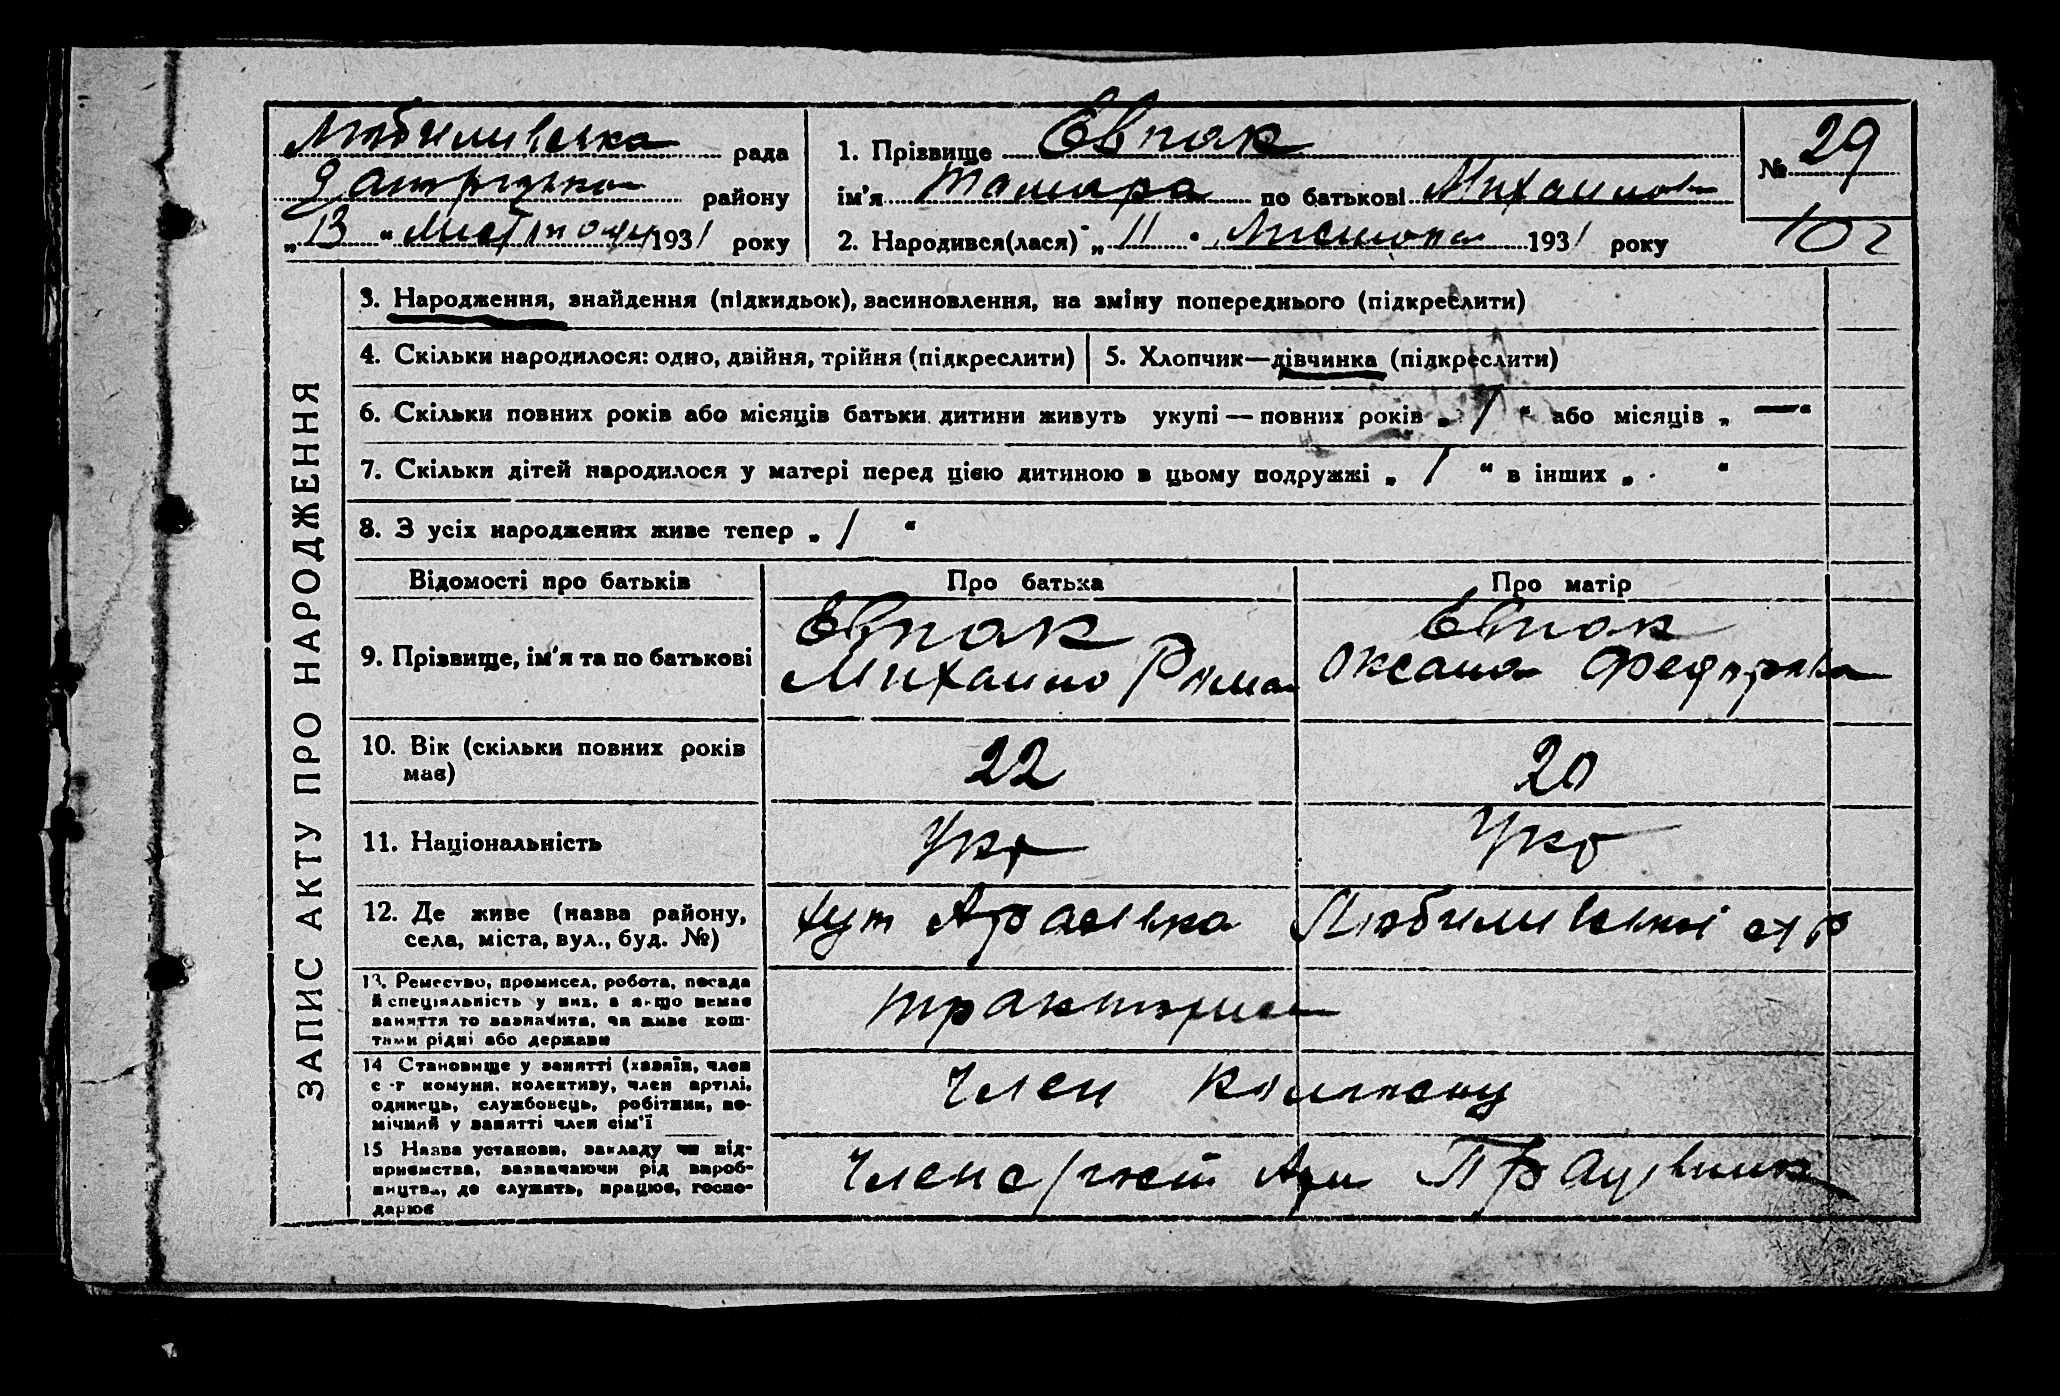 Любимивська рада
району
„13“ Листопаду 1931 року
1. Прізвище Евпак
ім'я Тамара по батькові Михайлов
2. Народився(лася) „11“ Листопа 1931 року
№ 29
102
ЗАПИС АКТУ ПРО НАРОДЖЕННЯ
3. Народження, знайдення (підкидьок), засиновлення, на зміну попереднього (підкреслити)
4. Скільки народилося: одно, двійня, трійня (підкреслити)
5. Хлопчик—дівчинка (підкреслити)
6. Скільки повних років або місяців батьки дитини живуть укупі — повних років „ 1 “ або місяців „ — “
7. Скільки дітей народилося у матері перед цією дитиною в цьому подружжі „ 1 “ в інших „ “
8. З усіх народжених живе тепер „ 1 “
Відомості про батьків
Про батька
Про матір
9. Прізвище, ім'я та по батькові
Евпак
Михайло Рома
Евпак
Оксана Федорова
10. Вік (скільки повних років
має)
22
20
11. Національність
Укр
Укр
12. Де живе (назва району,
села, міста, вул., буд. №)
хут Любимивської с/р
13. Ремество, промисел, робота, посада
й спеціяльність у них, а якщо немає
заняття то зазначити, чи живе кош-
тами рідні або держави
тракторис
14 Становище у занятті (хазяїн, член
с.-г комуни, колективу, член артілі,
одинець, службовець, робітник, по-
мічний у занятті член сім'ї
Член колгоспу
15 Назва установи, закладу чи під-
приємства, зазначаючи рід вироб-
ництва, де служить, працює, госпо-
дарює
Член с/гост Арт